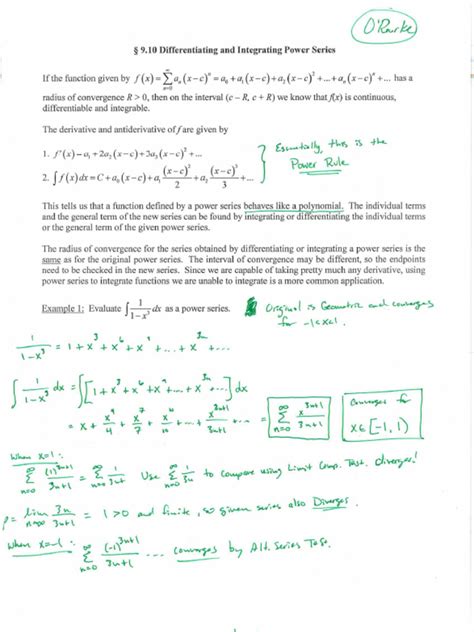 O'Rourke
§ 9.10 Differentiating and Integrating Power Series
If the function given by f(x) = ∑_{n=0}^{∞} a_n (x−c)^n = a_0 + a_1(x−c) + a_2(x−c)^2 + ... + a_n(x−c)^n + ... has a
radius of convergence R > 0, then on the interval (c − R, c + R) we know that f(x) is continuous,
differentiable and integrable.
The derivative and antiderivative of f are given by
1. f'(x) = a_1 + 2a_2(x−c) + 3a_3(x−c)^2 + ...
2. ∫ f(x)dx = C + a_0(x−c) + a_1 (x−c)^2/2 + a_2 (x−c)^3/3 + ...
Essentially, this is the
Power Rule
This tells us that a function defined by a power series behaves like a polynomial. The individual terms
and the general term of the new series can be found by integrating or differentiating the individual terms
or the general term of the given power series.
The radius of convergence for the series obtained by differentiating or integrating a power series is the
same as for the original power series. The interval of convergence may be different, so the endpoints
need to be checked in the new series. Since we are capable of taking pretty much any derivative, using
power series to integrate functions we are unable to integrate is a more common application.
Example 1: Evaluate ∫ 1/(1−x^3) dx as a power series.
Original is Geometric and converges
for -1<x<1.
1/(1−x^3) = 1 + x^3 + x^6 + x^9 + ... + x^{3n} + ...
∫ 1/(1−x^3) dx = ∫ [1 + x^3 + x^6 + x^9 + ... + x^{3n} + ...] dx
= x + x^4/4 + x^7/7 + x^10/10 + ... + x^{3n+1}/(3n+1) + ... = ∑_{n=0}^{∞} x^{3n+1}/(3n+1)
Converges for
x∈[-1, 1)
When x=1: ∑_{n=0}^{∞} (1)^{3n+1}/(3n+1) = ∑_{n=0}^{∞} 1/(3n+1) Use to compare using Limit Comp. Test. diverges!
= 1 > 0 and finite, so given series also Diverges.
When x=-1: ∑_{n=0}^{∞} (-1)^{3n+1}/(3n+1) ... converges by Alt. Series Test.